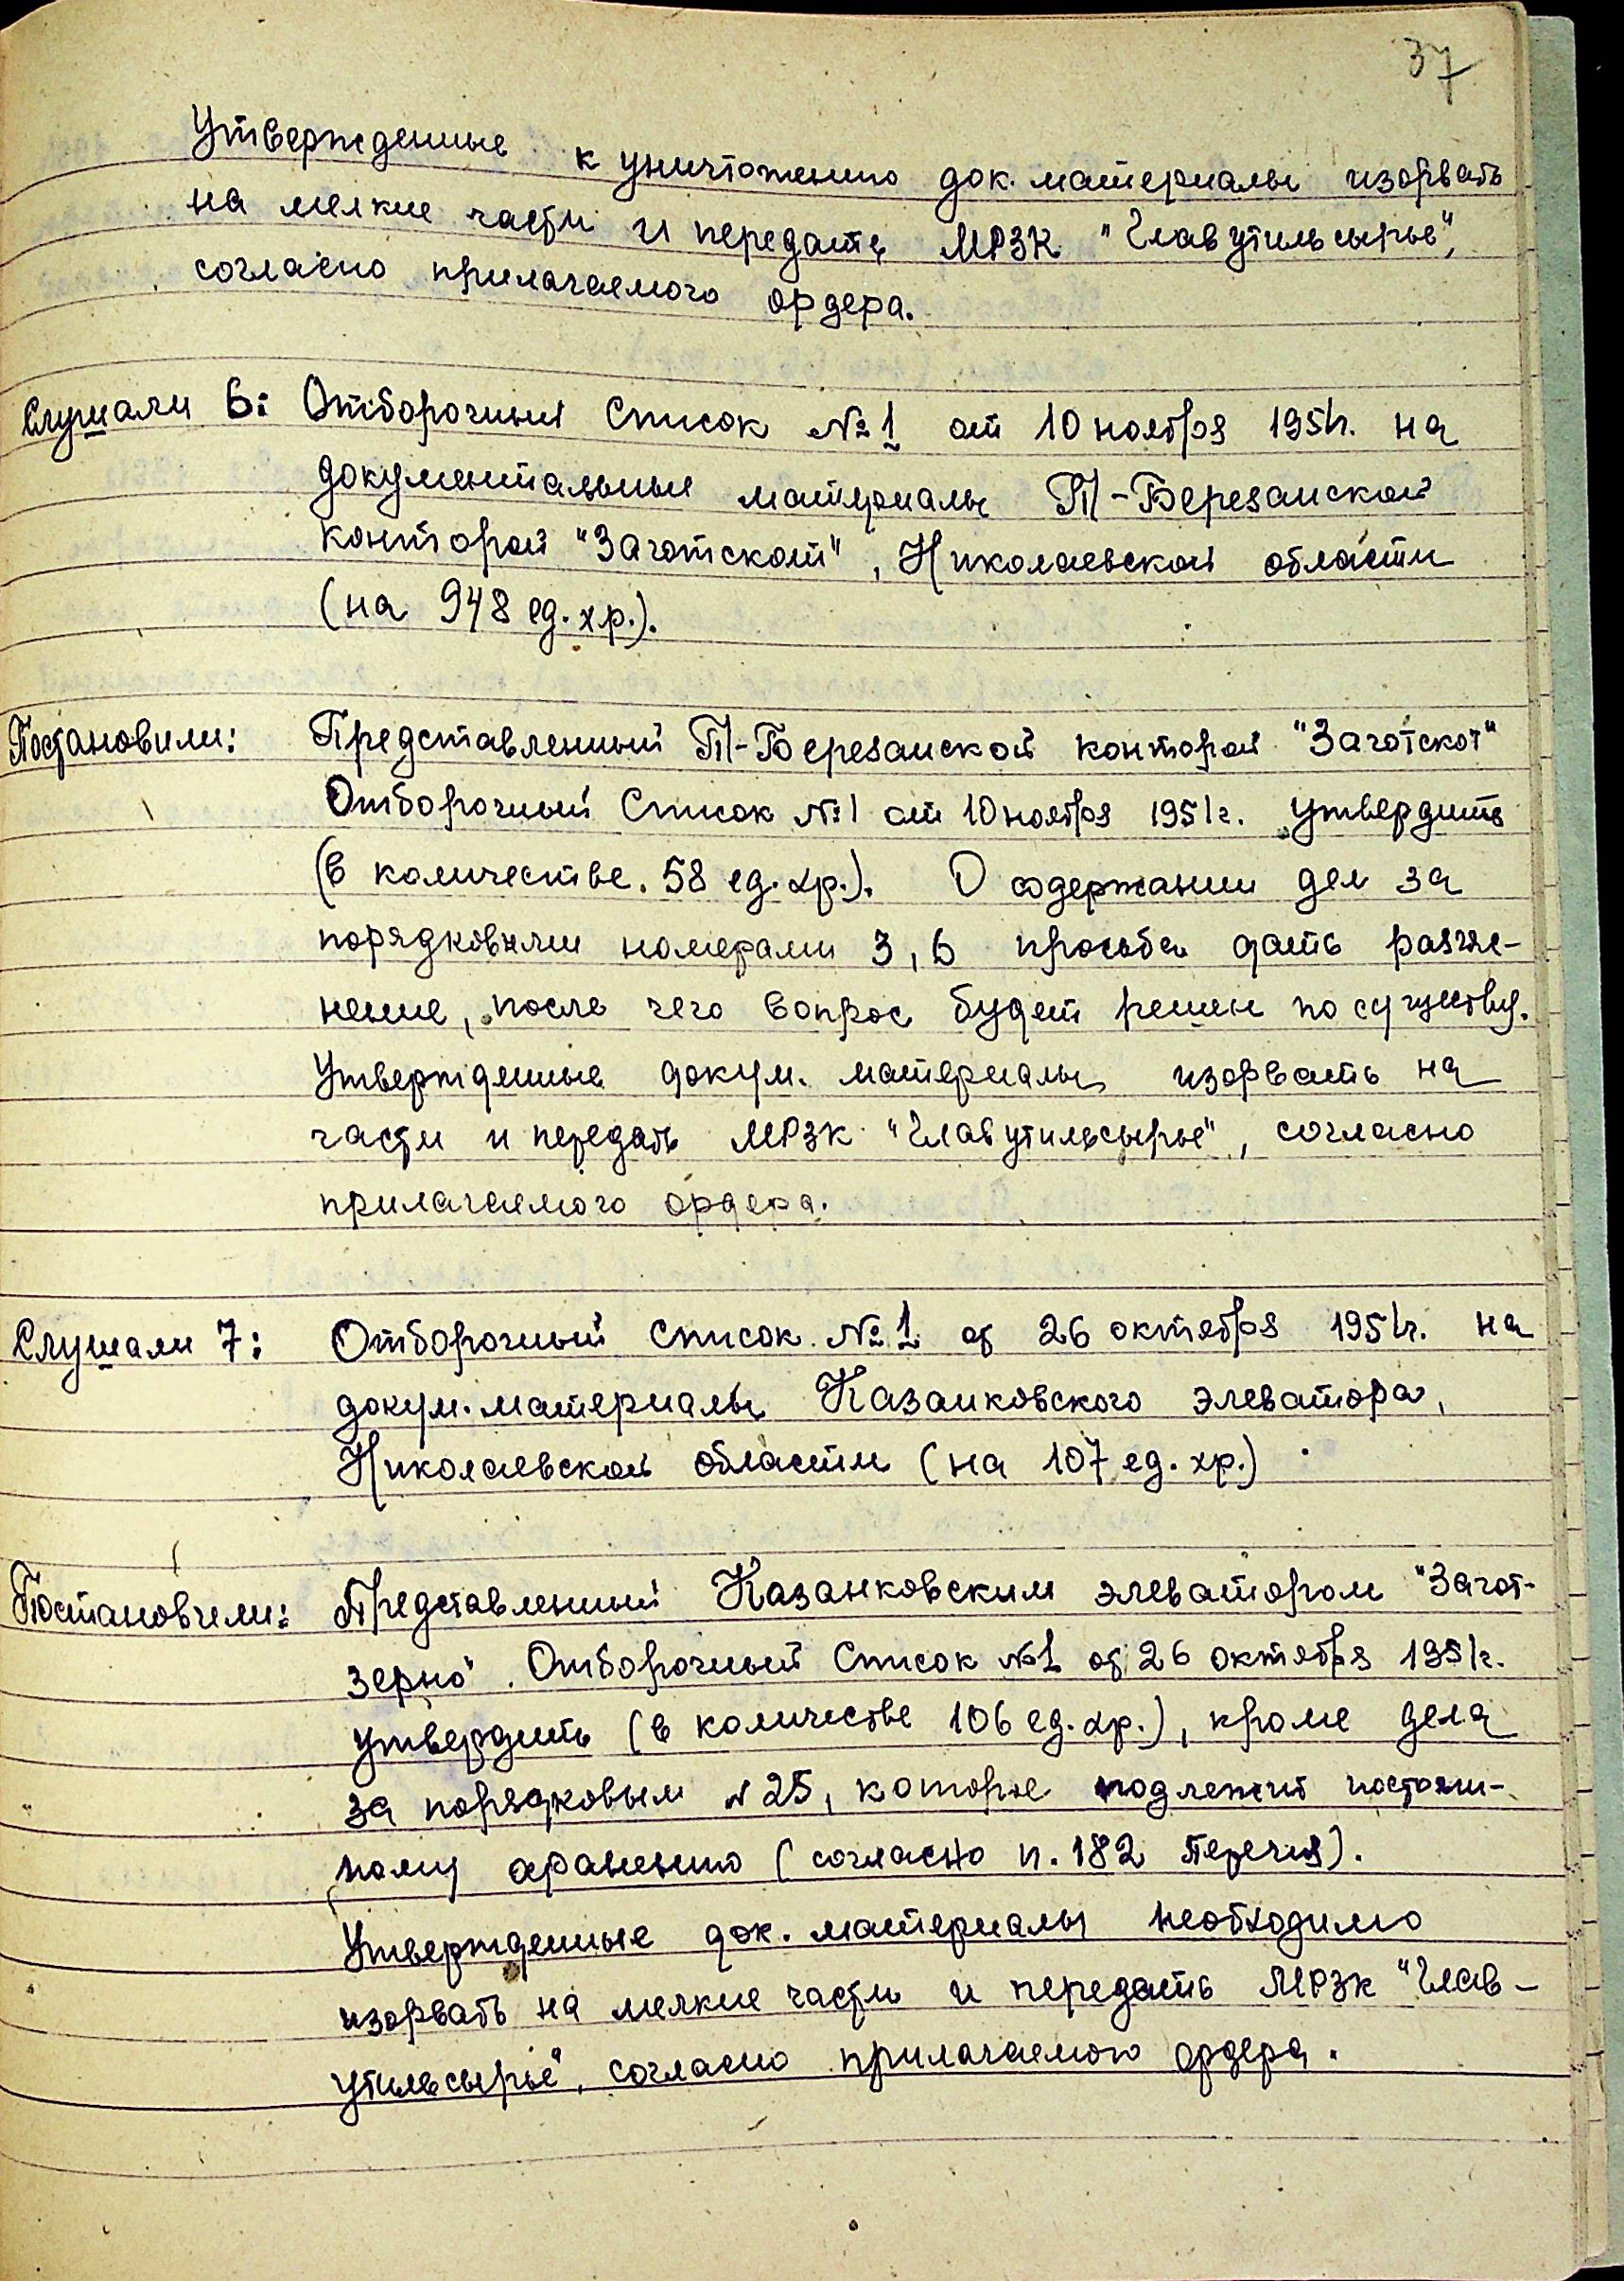 37
Утвержденные к уничтожению док. материалы изорвать
на мелкие части и передать МРЗК "Главутильсырье",
согласно прилагаемого ордера.
Слушали 6: Отборочный Список №1 от 10 ноября 1951г. на
документальные материалы Т-Березанской
конторой "Заготскот", Николаевской области
(на 948 ед. хр.).
Постановили: Представленный Т-Березанской конторой "Заготскот"
Отборочный Список №1 от 10 ноября 1951г. утвердить
(в количестве 58 ед. хр.). О содержании дел за
порядковыми номерами 3, 6 просьба дать разъяс-
нение, после чего вопрос будет решен по существу.
Утвержденные докум. материалы изорвать на
части и передать МРЗК "Главутильсырье", согласно
прилагаемого ордера.
Слушали 7: Отборочный Список №1 от 26 октября 1951г. на
докум. материалы Казанковского элеватора,
Николаевской области (на 107 ед. хр.)
Постановили: Представленный Казанковским элеватором "Загот-
зерно" Отборочный Список №1 от 26 октября 1951г.
утвердить (в количестве 106 ед. хр.), кроме дела
за порядковым № 25, которое подлежит постоян-
ному хранению (согласно п. 182 Перечня).
Утвержденные док. материалы необходимо
изорвать на мелкие части и передать МРЗК "Глав-
утильсырье", согласно прилагаемого ордера.